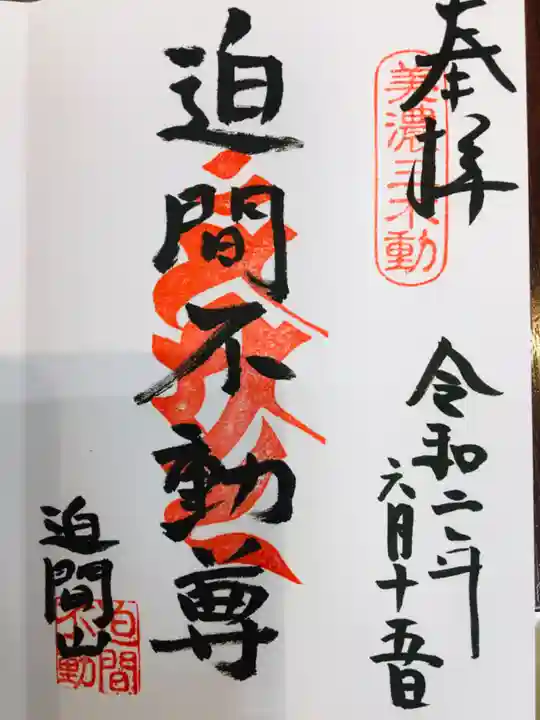 奉拝
美濃三不動
令和二年
六月十五日
迫間不動尊
迫間山
迫間
不動